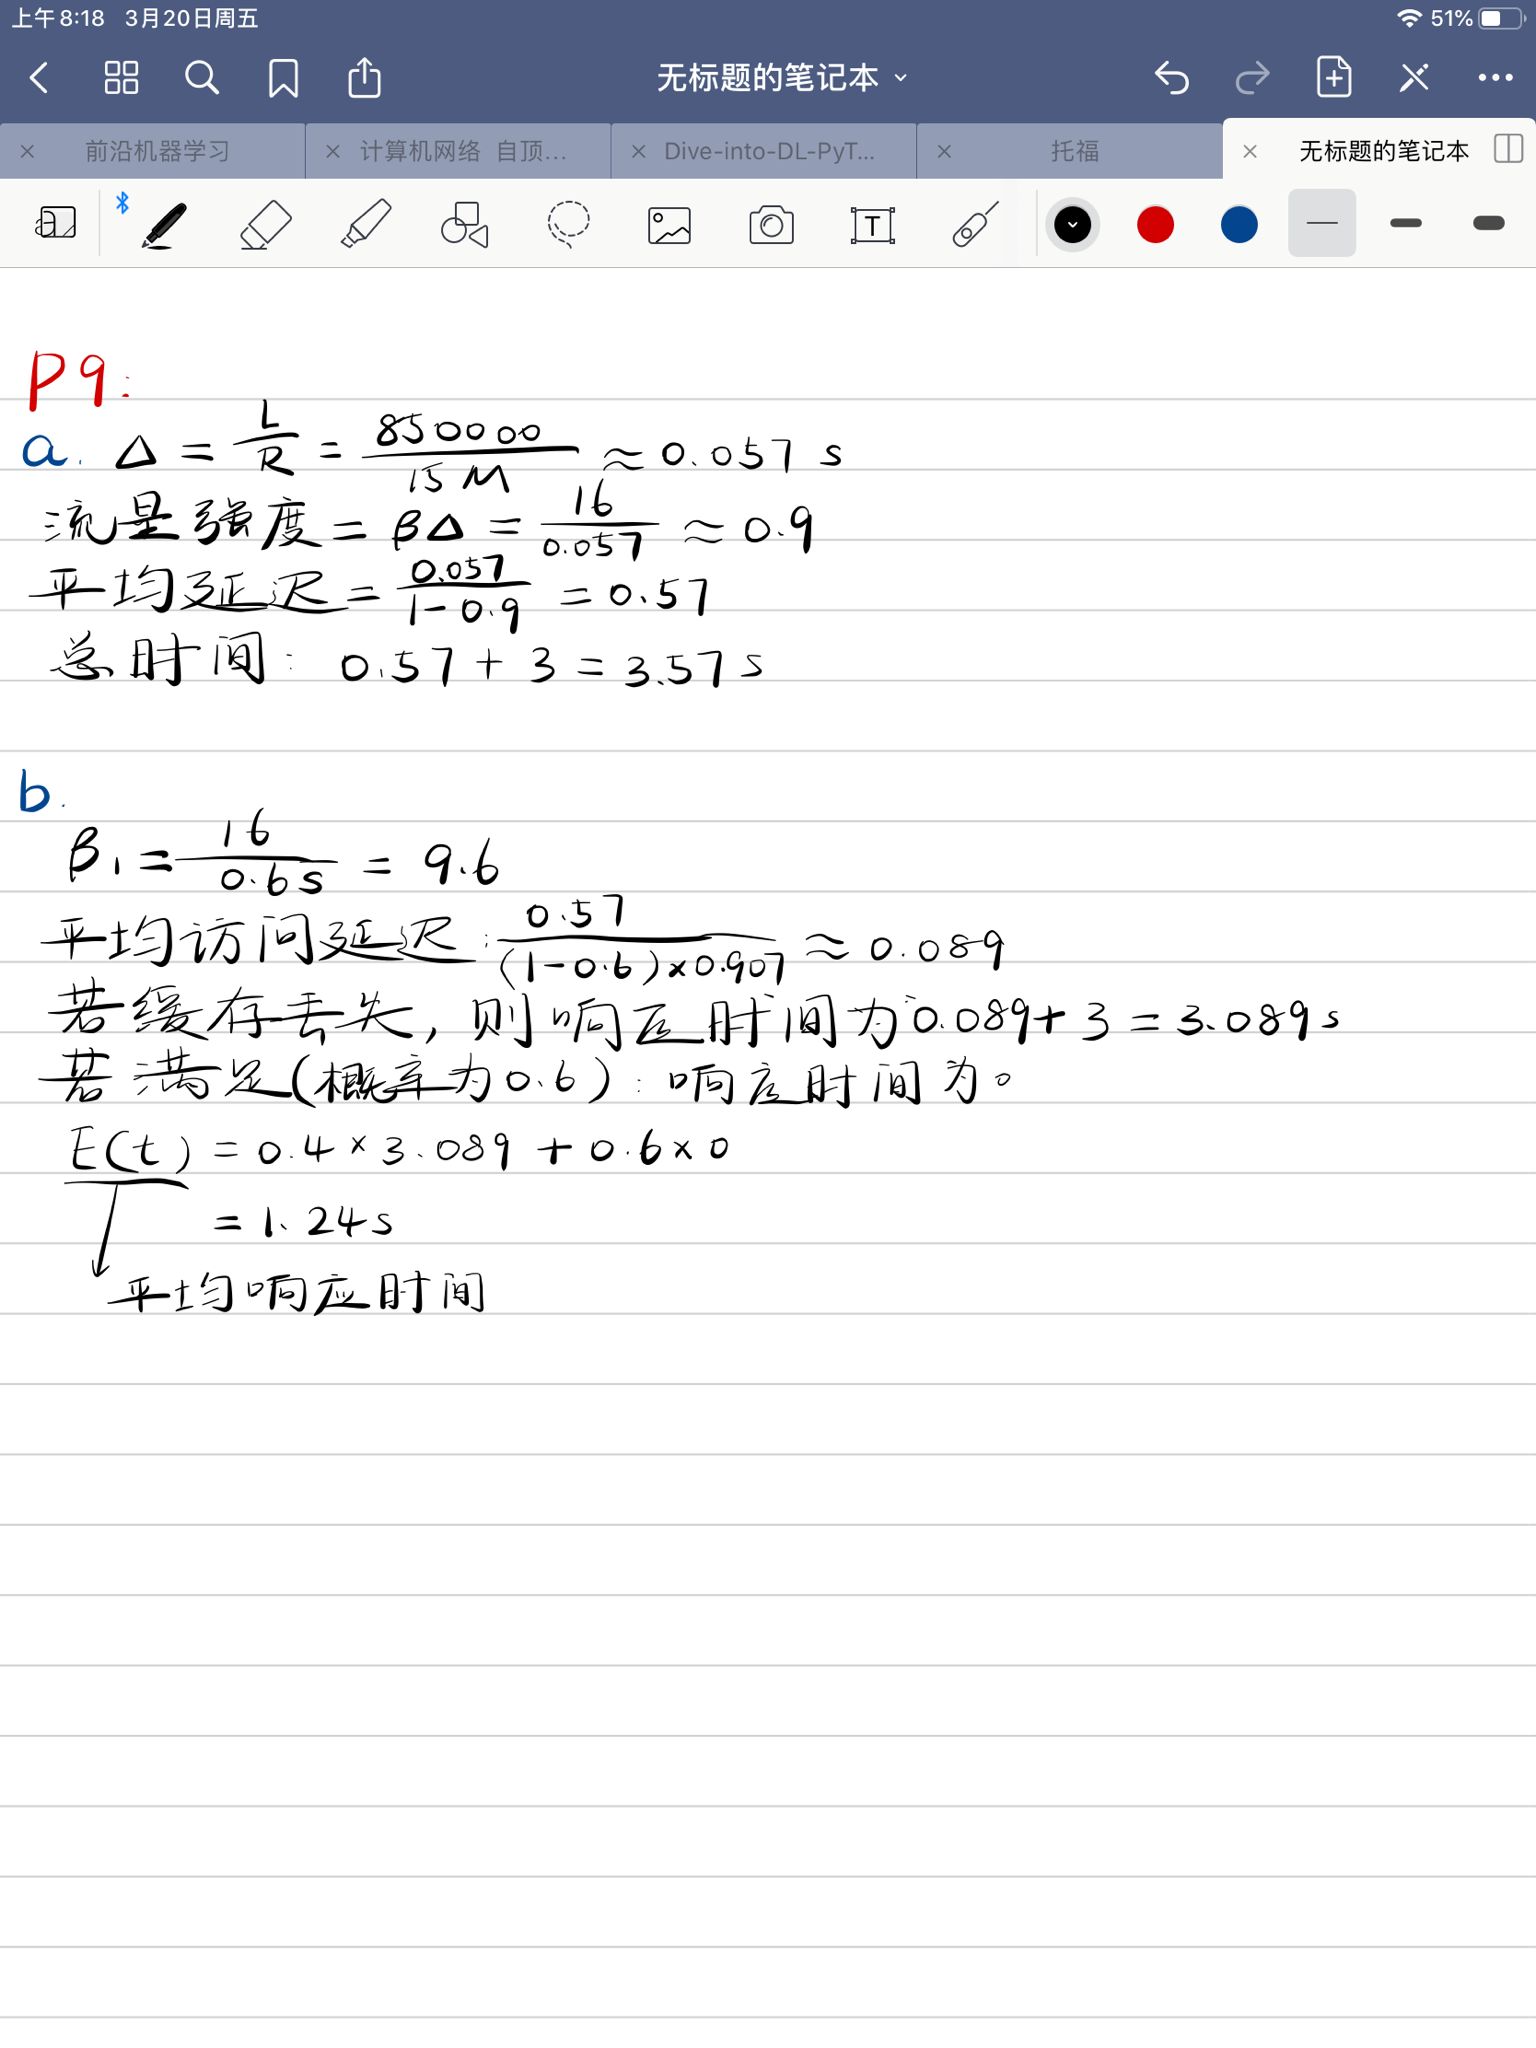 上午8:18 3月20日周五 51%
无标题的笔记本
前沿机器学习 计算机网络 自顶... Dive-into-DL-PyT... 托福 无标题的笔记本
P9:
a. Δ = L/R = 850000/15M ≈ 0.057 s
流量强度 = βΔ = 16/0.057 ≈ 0.9
平均延迟 = 0.057/1-0.9 = 0.57
总时间: 0.57 + 3 = 3.57 s
b.
β1 = 16/0.6s = 9.6
平均访问延迟: 0.57/(1-0.6)×0.907 ≈ 0.089
若缓存丢失, 则响应时间为0.089+3 = 3.089s
若满足(概率为0.6): 响应时间为。
E(t) = 0.4×3.089 + 0.6×0
= 1.24s
平均响应时间